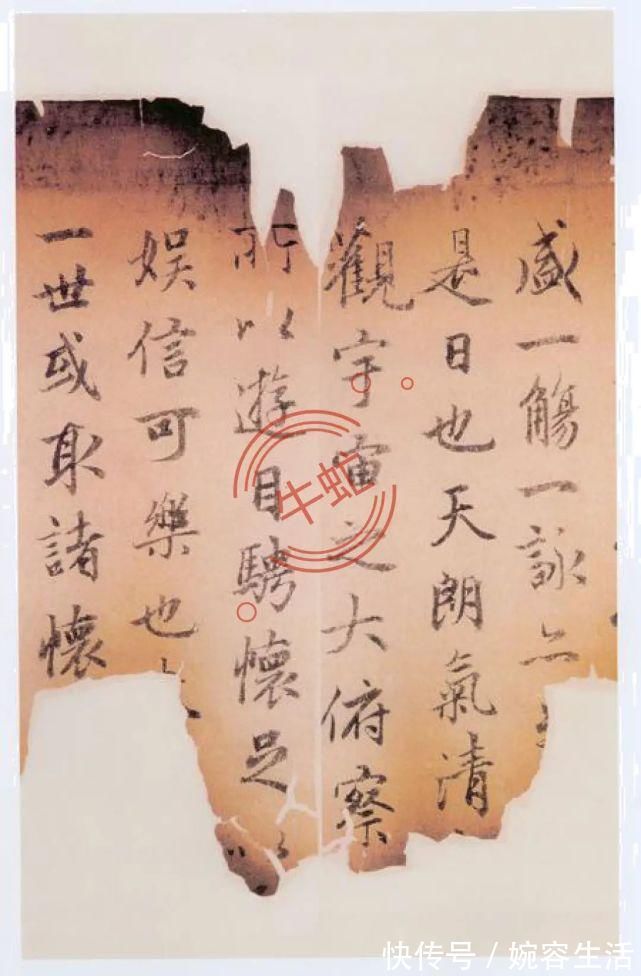 盛一觴一詠亦
是日也天朗氣清
觀宇宙之大俯察
所以遊目騁懷足以
娱信可樂也
一世或取諸懷
牛蛇
快传号/婉容生活